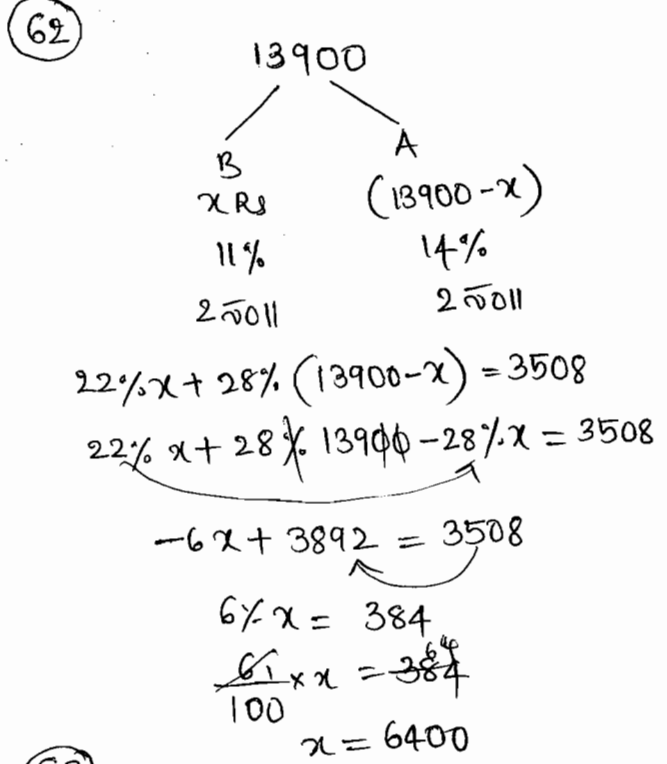 62
13900
B A
x Rs (13900-x)
11% 14%
2 సం|| 2 సం||
22% x + 28% (13900-x) = 3508
22% x + 28% 13900 - 28% x = 3508
-6x + 3892 = 3508
6% x = 384
64
6/100 × x = 384
x = 6400